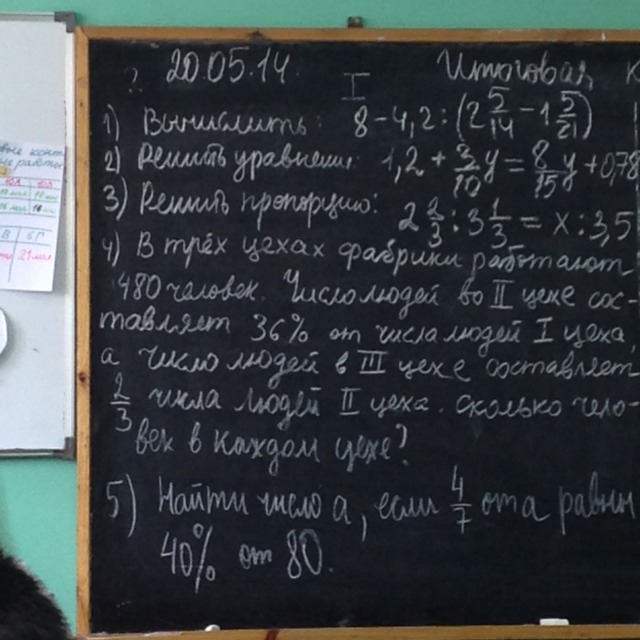 20.05.14. Итоговая К
I
1) Вычислить: 8 - 4,2 : (2 5/14 - 1 5/21)
2) Решить уравнение: 1,2 + 3/10 y = 8/15 y + 0,78
3) Решить пропорцию: 2 2/3 : 3 1/3 = x : 3,5
4) В трёх цехах фабрики работают
480 человек. Число людей во II цехе сос-
тавляет 36% от числа людей I цеха,
а число людей в III цехе составляет
2/3 числа людей II цеха. Сколько чело-
век в каждом цехе?
5) Найти число a, если 4/7 от a равны
40% от 80.